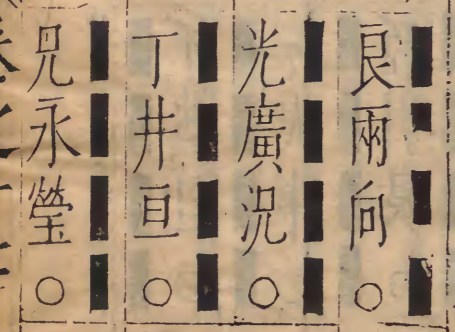 良兩向○
光廣況○
丁井亘○
兄永瑩○